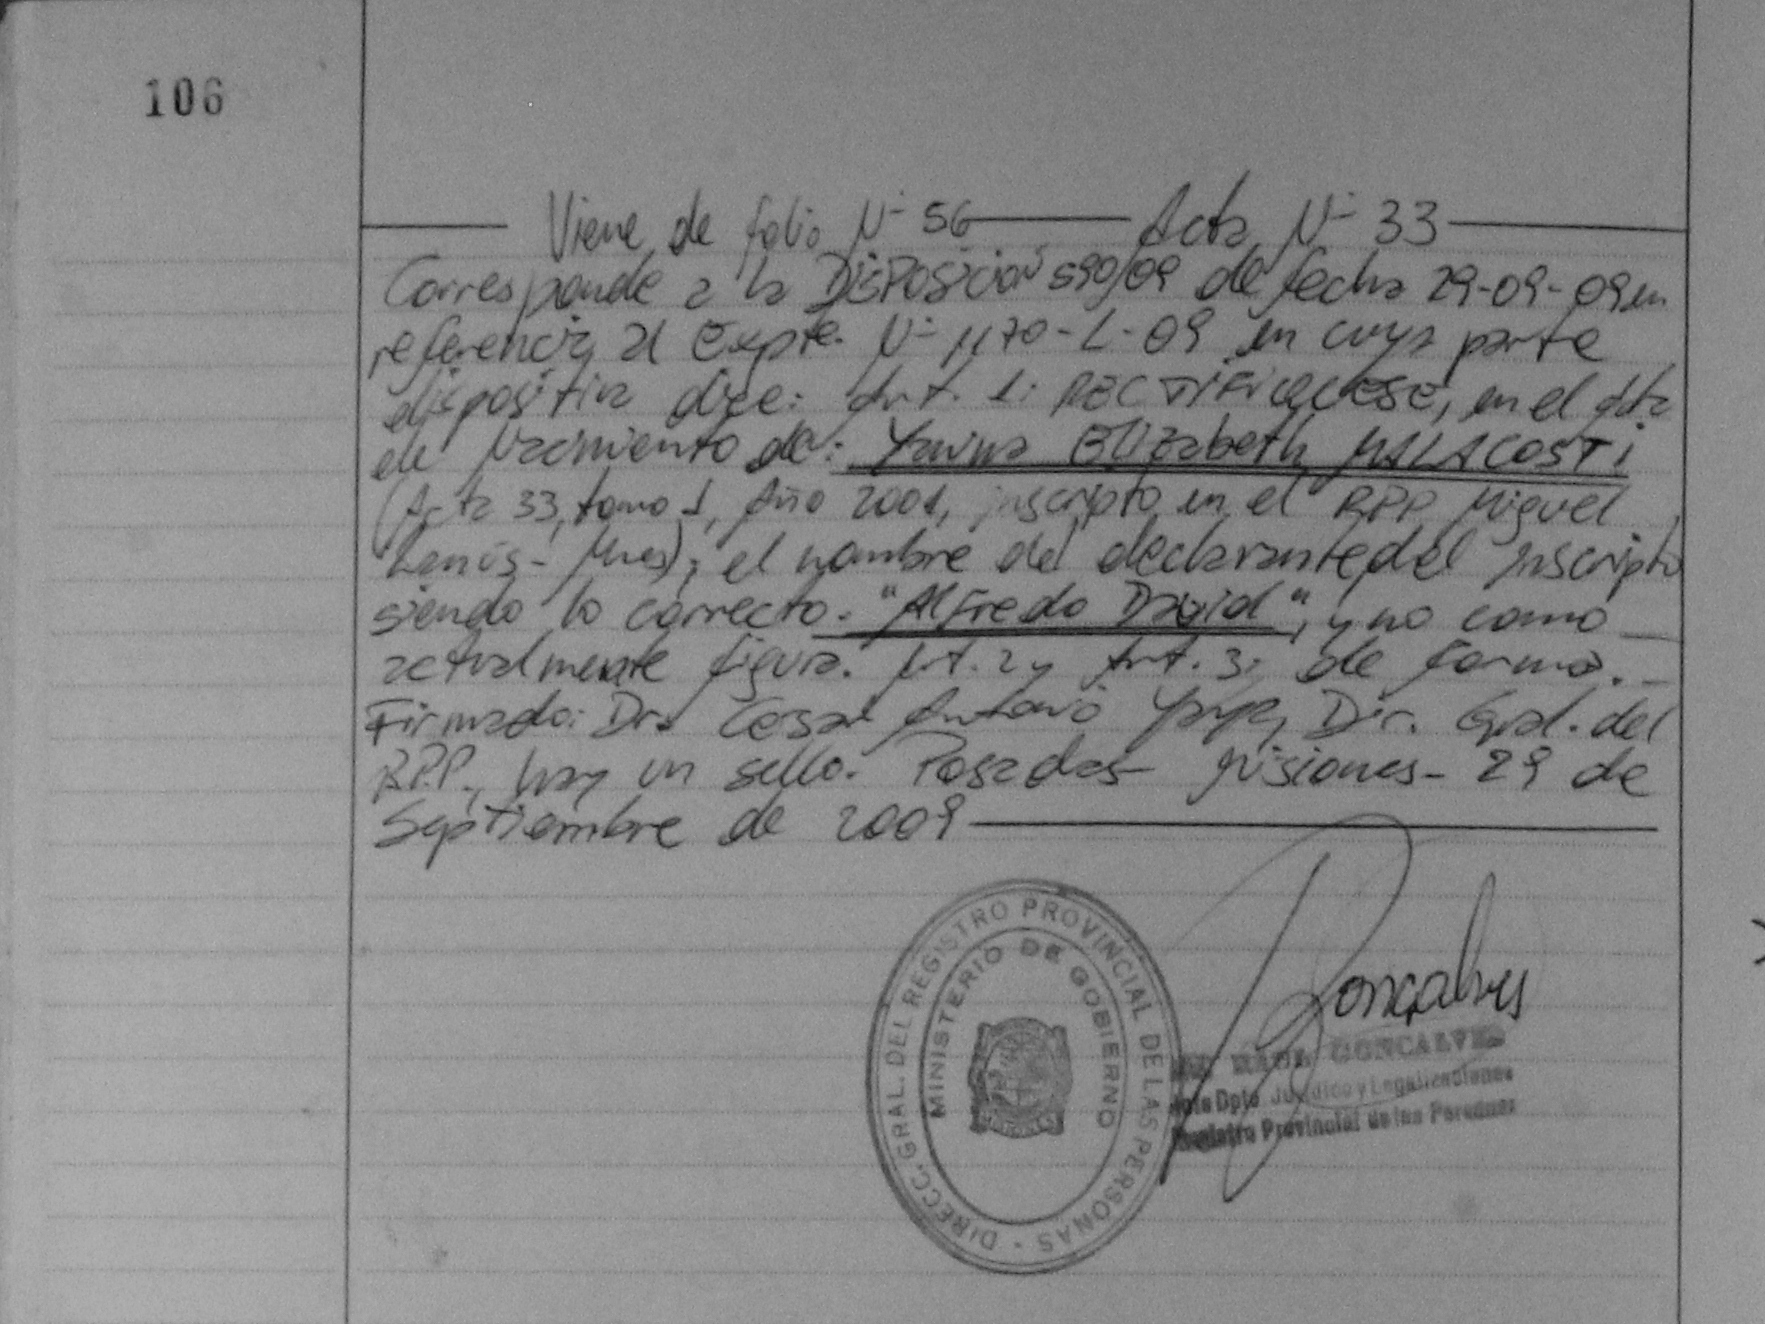 106
Viene de folio Nº 56 — Acta Nº 33 —
Corresponde a la DISPOSICIÓN 590/09 de fecha 29-09-09 en
referencia al Expte. Nº 1170-L-09 en cuya parte
dispositiva dice: Art. 1: RECTIFIQUESE, en el Acta
de Nacimiento de: Yanina Elizabeth MALACOSTI
(Acta 33, tomo 1, Año 2001, inscripto en el RPP Miguel
Lanús - Mnes); el nombre del declarante del inscripto
siendo lo correcto. "Alfredo David", y no como
actualmente figura. Art. 2 y Art. 3: de forma.
Firmado: Dr. Cesar Antonio Dir. Gral. del
RPP., hay un sello. Posadas Misiones - 29 de
Septiembre de 2009
DIRECC. GRAL. DEL REGISTRO PROVINCIAL DE LAS PERSONAS
MINISTERIO DE GOBIERNO
Goncalves
RAUL GONCALVES
Dpto. Jurídico y Legalizaciones
Registro Provincial de las Personas